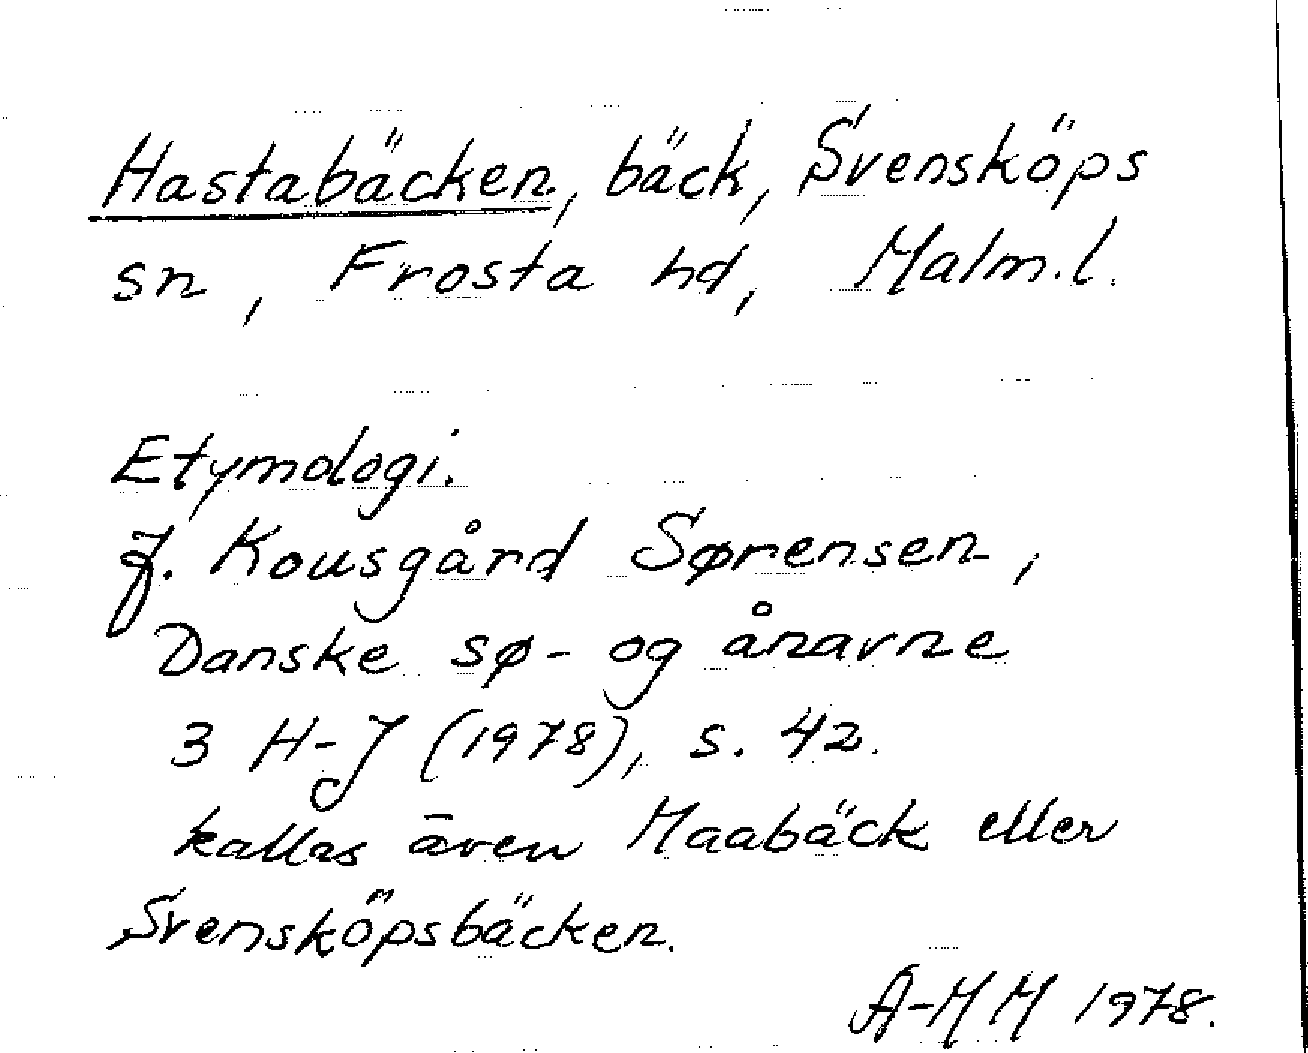 Hastabäcken, bäck, Svensköps
sn, Frosta hd, Malm.l.
Etymologi.
J. Kousgård Sørensen,
Danske sø- og ånavne
3 H-J (1978), s. 42.
kallas även Maabäck eller
Svensköpsbäcken.
A-MM 1978.